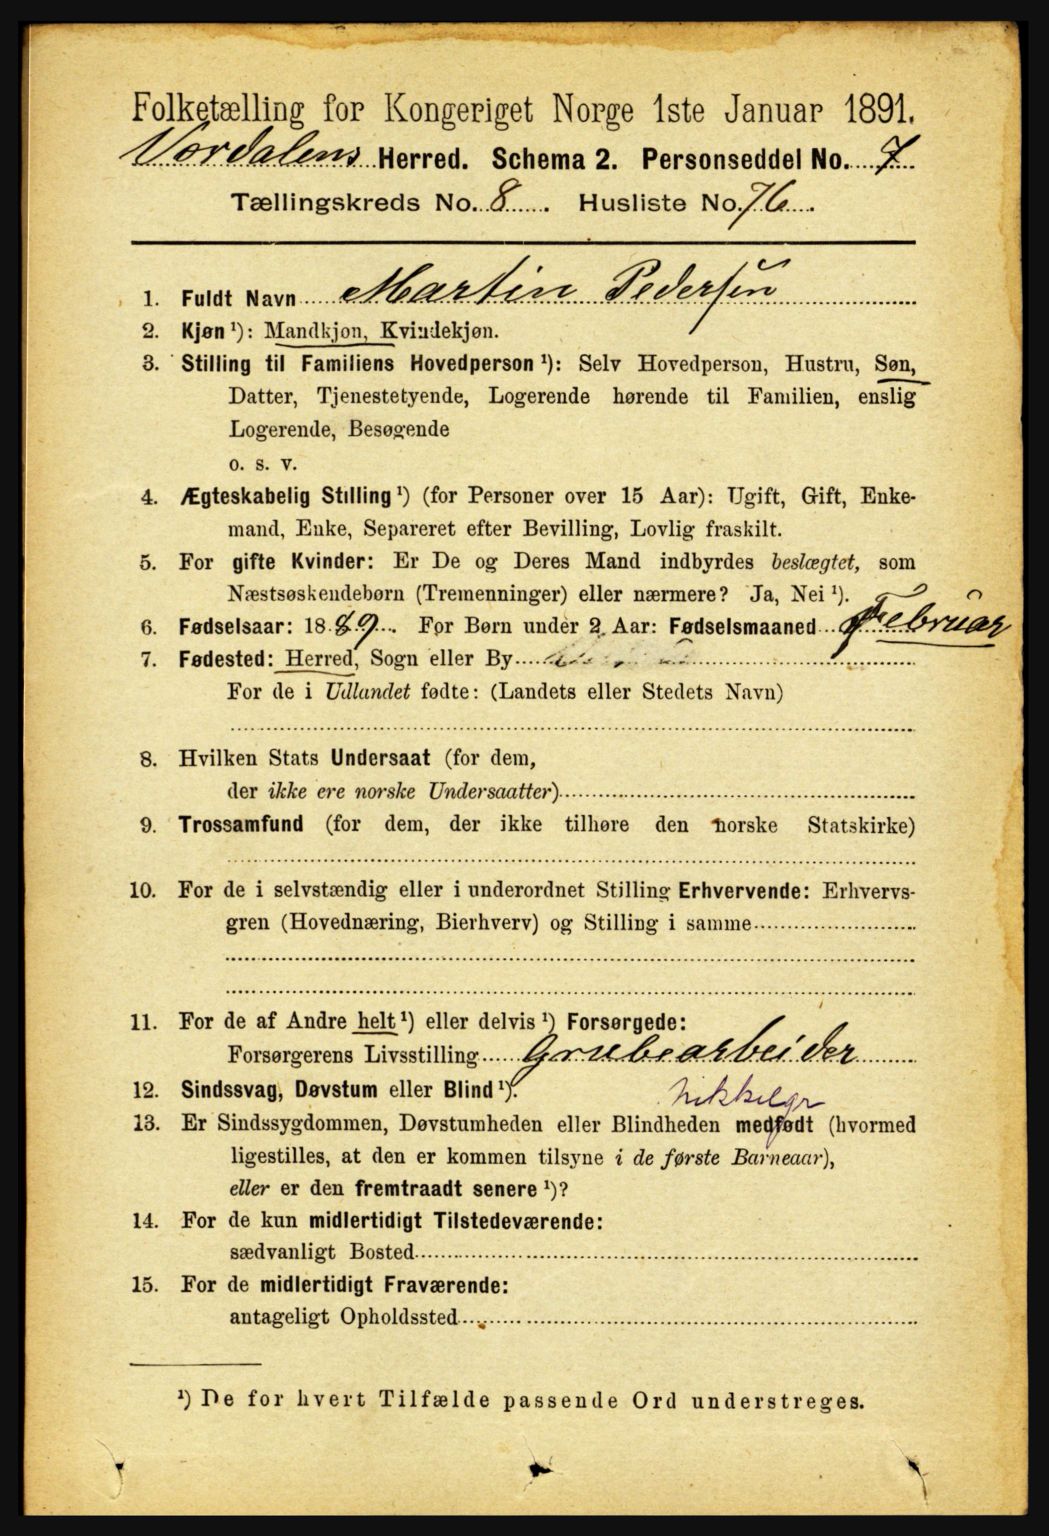 Folketælling for Kongeriget Norge 1ste Januar 1891.
Værdalens Herred. Schema 2. Personseddel No. 7
Tællingskreds No. 8. Husliste No. 76.
1. Fuldt Navn Martin Pedersen
2. Kjøn ¹): Mandkjon, Kvindekjøn.
3. Stilling til Familiens Hovedperson ¹): Selv Hovedperson, Hustru, Søn,
Datter, Tjenestetyende, Logerende hørende til Familien, enslig
Logerende, Besøgende
o. s. v.
4. Ægteskabelig Stilling ¹) (for Personer over 15 Aar): Ugift, Gift, Enke-
mand, Enke, Separeret efter Bevilling, Lovlig fraskilt.
5. For gifte Kvinder: Er De og Deres Mand indbyrdes beslægtet, som
Næstsøskendebørn (Tremenninger) eller nærmere? Ja, Nei ¹).
6. Fødselsaar: 1889. For Børn under 2 Aar: Fødselsmaaned Februar
7. Fødested: Herred, Sogn eller By
For de i Udlandet fødte: (Landets eller Stedets Navn)
8. Hvilken Stats Undersaat (for dem,
der ikke ere norske Undersaatter)
9. Trossamfund (for dem, der ikke tilhøre den norske Statskirke)
10. For de i selvstændig eller i underordnet Stilling Erhvervende: Erhvervs-
gren (Hovednæring, Bierhverv) og Stilling i samme
11. For de af Andre helt ¹) eller delvis ¹) Forsørgede:
Forsørgerens Livsstilling Grubearbeider
12. Sindssvag, Døvstum eller Blind ¹). Nikkelgr
13. Er Sindssygdommen, Døvstumheden eller Blindheden medfødt (hvormed
ligestilles, at den er kommen tilsyne i de første Barneaar),
eller er den fremtraadt senere ¹)?
14. For de kun midlertidigt Tilstedeværende:
sædvanligt Bosted
15. For de midlertidigt Fraværende:
antageligt Opholdssted
¹) De for hvert Tilfælde passende Ord understreges.